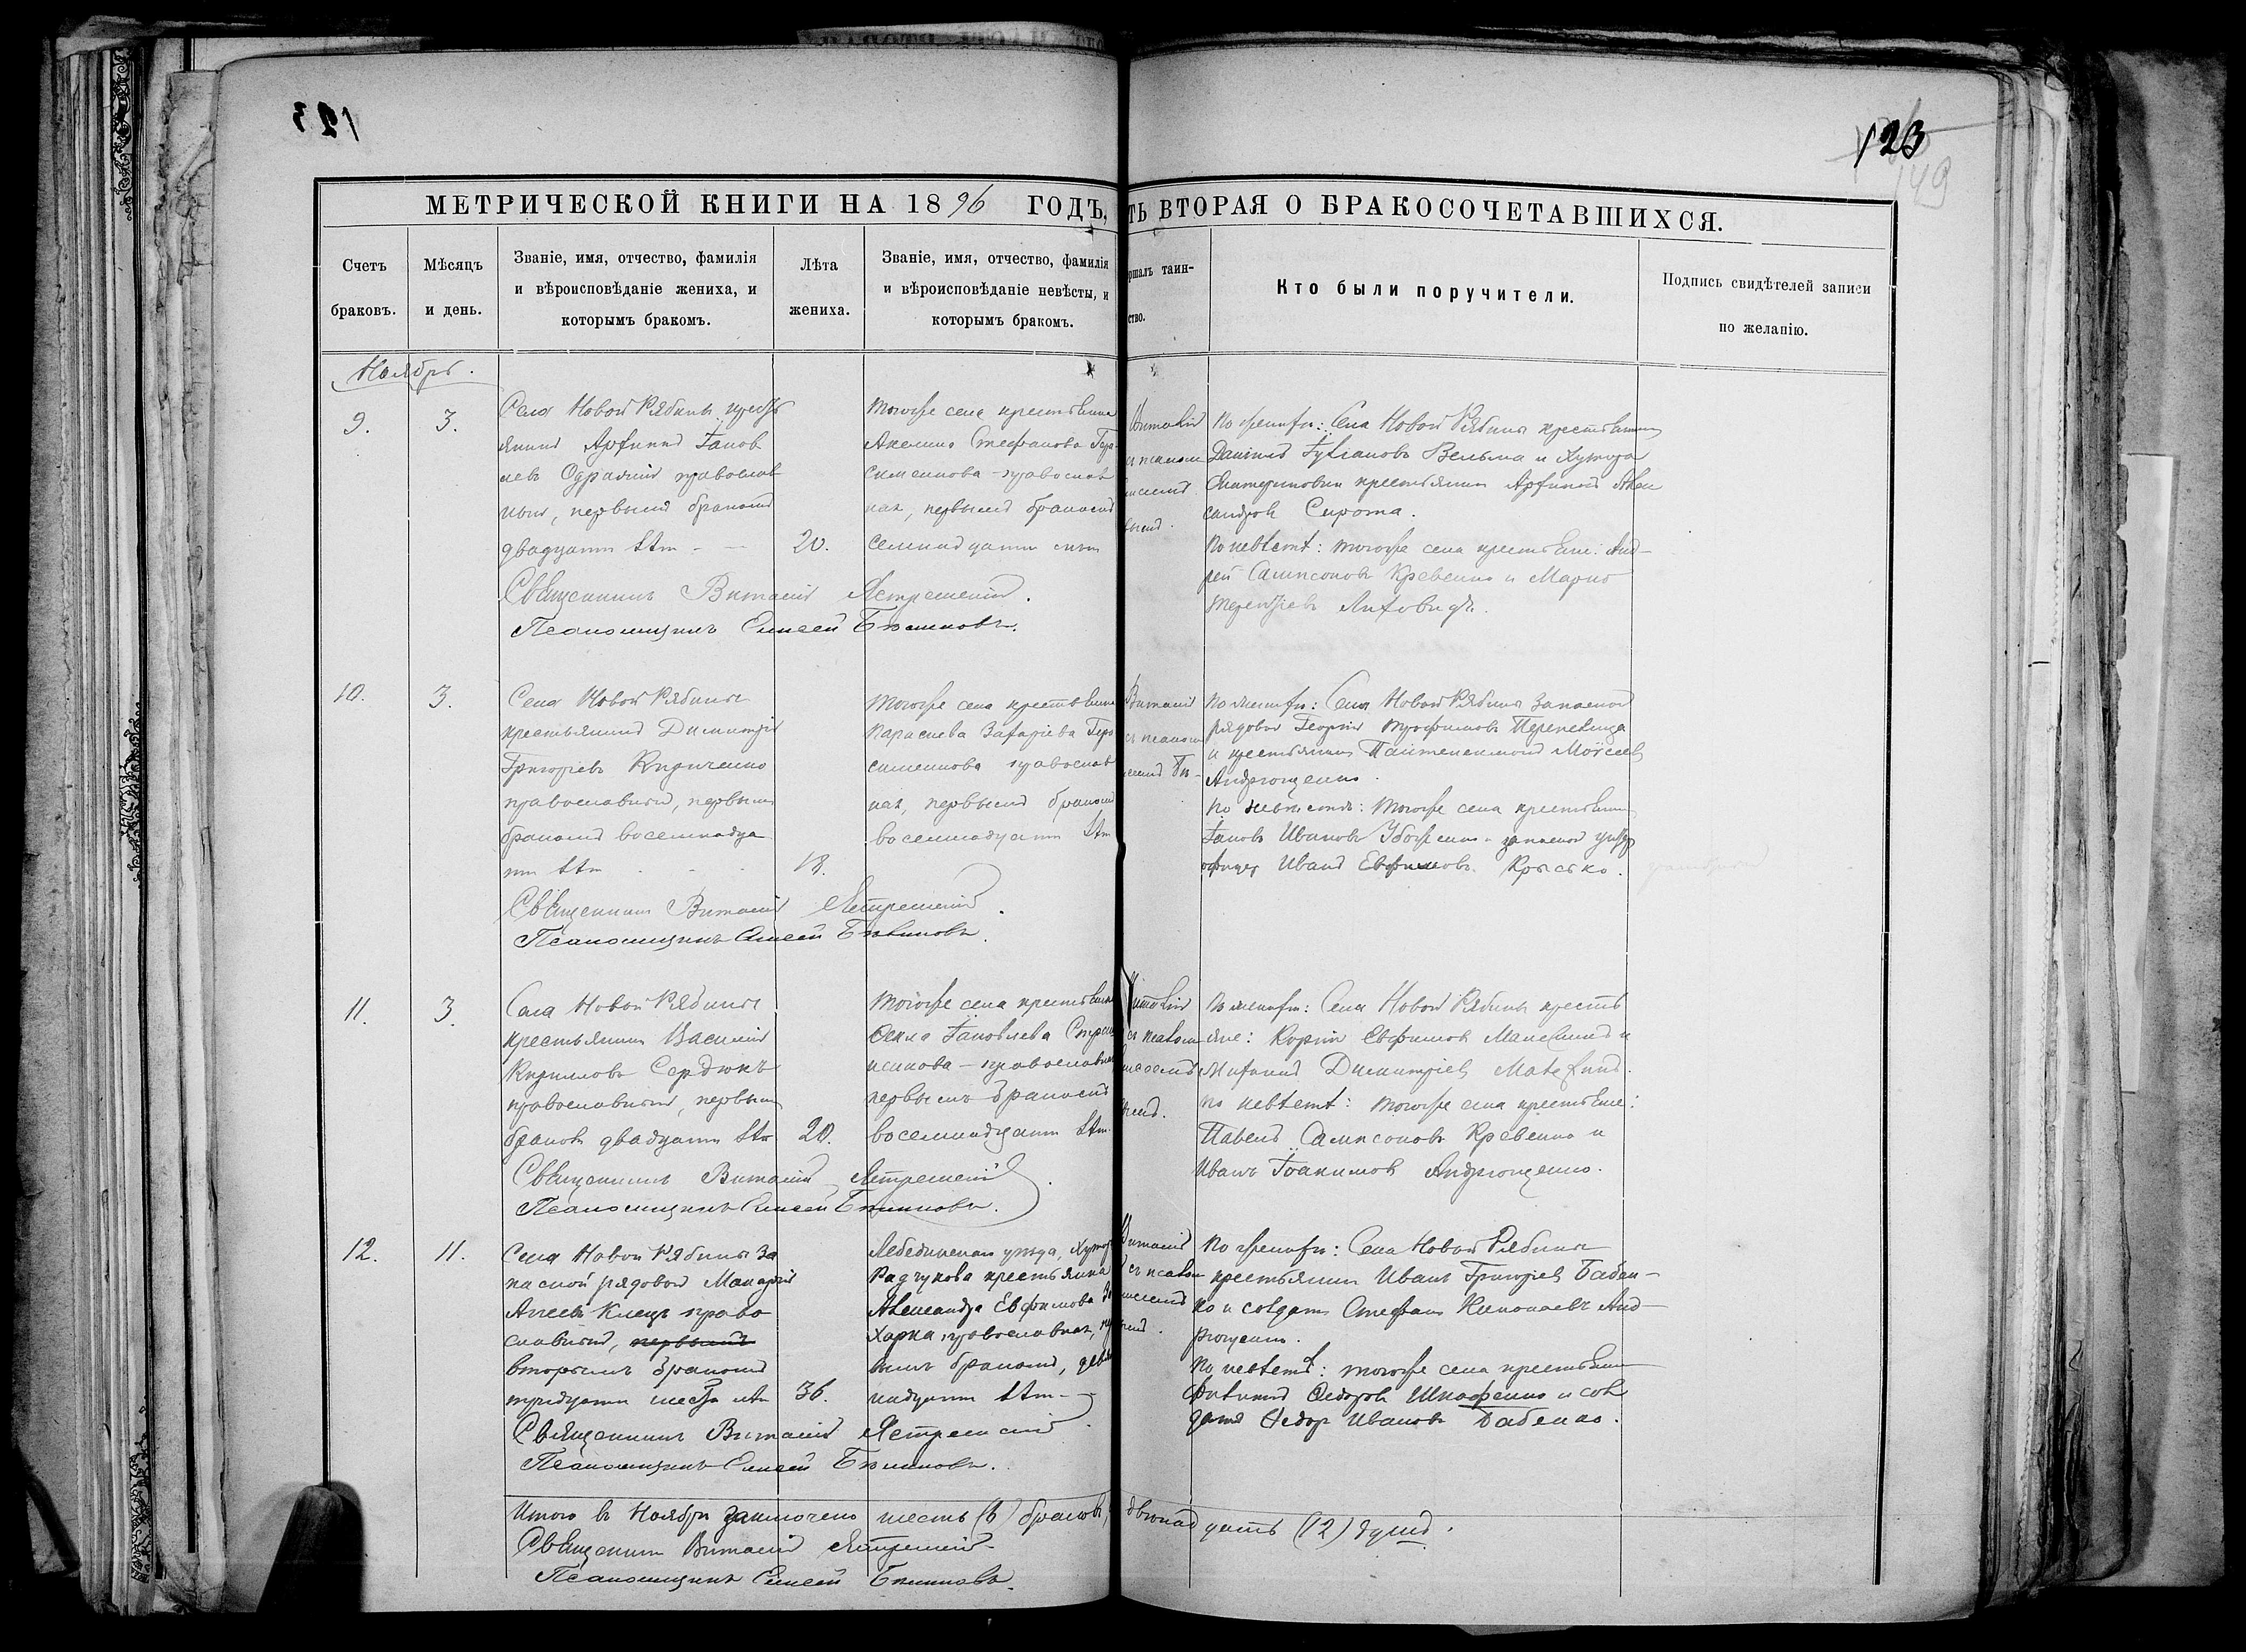 123
123
149
МЕТРИЧЕСКОЙ КНИГИ НА 1896 ГОДЪ,
ТЬ ВТОРАЯ О БРАКОСОЧЕТАВШИХСЯ.
Счетъ браковъ.
Мѣсяцъ и день.
Званіе, имя, отчество, фамилія
и вѣроисповѣданіе жениха, и
которымъ бракомъ.
Лѣта
жениха.
Званіе, имя, отчество, фамилія
и вѣроисповѣданіе невѣсты, и
которымъ бракомъ.
ршалъ таин-
ство.
Кто были поручители.
Подпись свидѣтелей записи
по желанію.
Ноябрь.
9.
3.
Села Новой Рябины кресть
янинъ
Іаков
левъ православ
ный, первымъ бракомъ
двадцати лѣтъ
20.
Тогоже села крестьянка
Акилина Стефанова Гера
сименкова - православ
ная, первымъ бракомъ
семнадцати лѣтъ
Виталій
съ псалом
По женихѣ: Села Новой Рябины крестьянинъ
Даніилъ Вельма и Хутора
Екатериновки крестьянинъ Алек
сандровъ Сирота.
По невѣстѣ: тогоже села крестьяне: Анд-
рей Сампсоновъ Кревенко и Марко
Терентіевъ
Священникъ Виталій Ястремскій.
Псаломщикъ Елисей
10.
3.
Села Новой Рябины
крестьянинъ Димитрій
Григоріевъ Кириченко
православный, первымъ
бракомъ восемнадца
ти лѣтъ
18.
Тогоже села крестьянка
Параскева Захаріева Гера
сименкова православ
ная, первымъ бракомъ
восемнадцати лѣтъ
Виталій
съ псалом
По женихѣ: Села Новой Рябины запасной
рядовой Георгій Трофимовъ Перепелица
и крестьянинъ Пантелеимонъ Моѵсеевъ
Андрющенко.
По невѣстѣ: тогоже села крестьянинъ
Іаковъ Ивановъ Убоженко и запасной унтеръ
офицеръ Иванъ Евфимовъ Крысько.
Священникъ Виталій Ястремскій.
Псаломщикъ Елисей
11.
3.
Села Новой Рябины
крестьянинъ Василій
Кирилловъ Сердюкъ
православный, первымъ
бракомъ двадцати лѣтъ
20.
Тогоже села крестьянка
Іаковлева
православная
первымъ бракомъ
восемнадцати лѣтъ.
Виталій
съ псалом
По женихѣ: Села Новой Рябины кресть
яне: Евфимовъ и
Димитріевъ
По невѣстѣ: тогоже села крестьяне:
Павелъ Сампсоновъ Кревенко и
Иванъ Іоакимовъ Андрющенко.
Священникъ Виталій Ястремскій.
Псаломщикъ Елисей
12.
11.
Села Новой Рябины за
пасной рядовой Макарій
право
славный, первымъ
вторымъ бракомъ
тридцати шести лѣтъ
36.
Лебединскаго уѣзда, Хутора
крестьянка
Александра Евфимова За
харка, православная, пер
вымъ бракомъ, девят
надцати лѣтъ
Виталій
съ псалом
По женихѣ: Села Новой Рябины
крестьянинъ Иванъ Григоріевъ Бабен-
ко и солдатъ Стефанъ Николаевъ Анд-
рющенко.
По невѣстѣ: тогоже села крестьянинъ
Ѳедоровъ и сол
датъ Ѳедоръ Ивановъ Бабенко.
Священникъ Виталій Ястремскій
Псаломщикъ Елисей
Итого въ Ноябрѣ заключено шесть (6) браковъ, двѣнадцать (12) душъ.
Священникъ Виталій Ястремскій.
Псаломщикъ Елисей